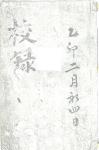 乙卯二月初四日
校録